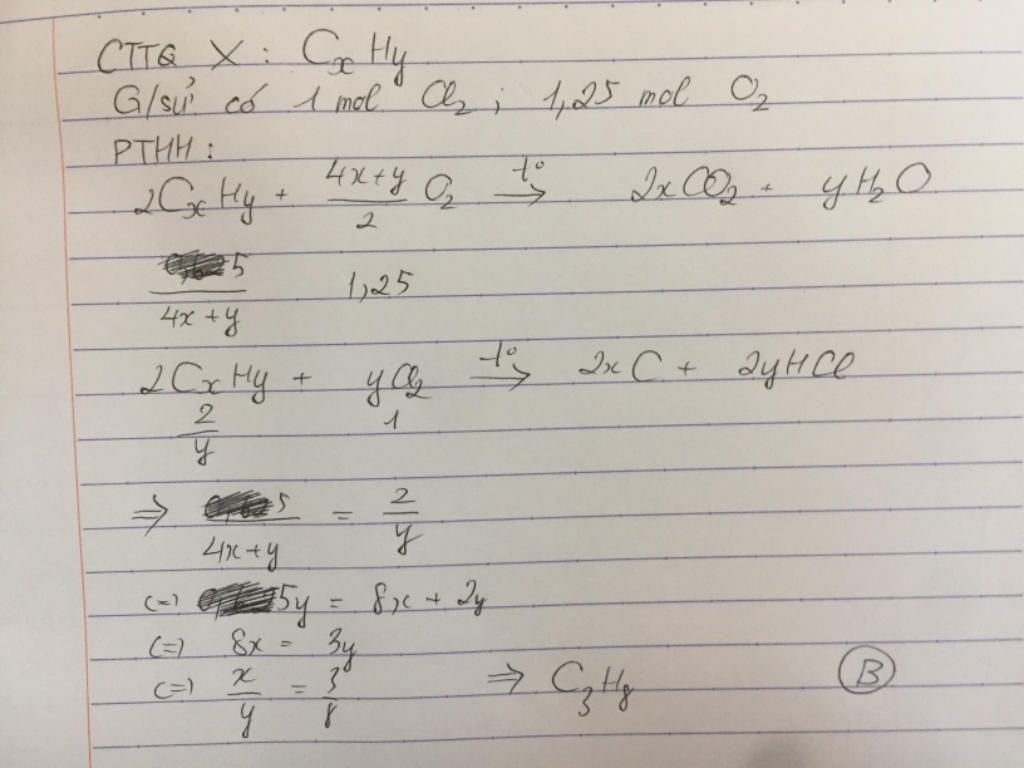 CTTQ X : CxHy
G/sử có 1 mol Cl2 ; 1,25 mol O2
PTHH :
2CxHy + (4x+y)/2 O2 →t° 2xCO2 + yH2O
5/(4x+y) 1,25
2CxHy + yCl2 →t° 2xC + 2yHCl
2/y 1
⇒ 5/(4x+y) = 2/y
(=) 5y = 8x + 2y
(=) 8x = 3y
(=) x/y = 3/8 ⇒ C3H8 B